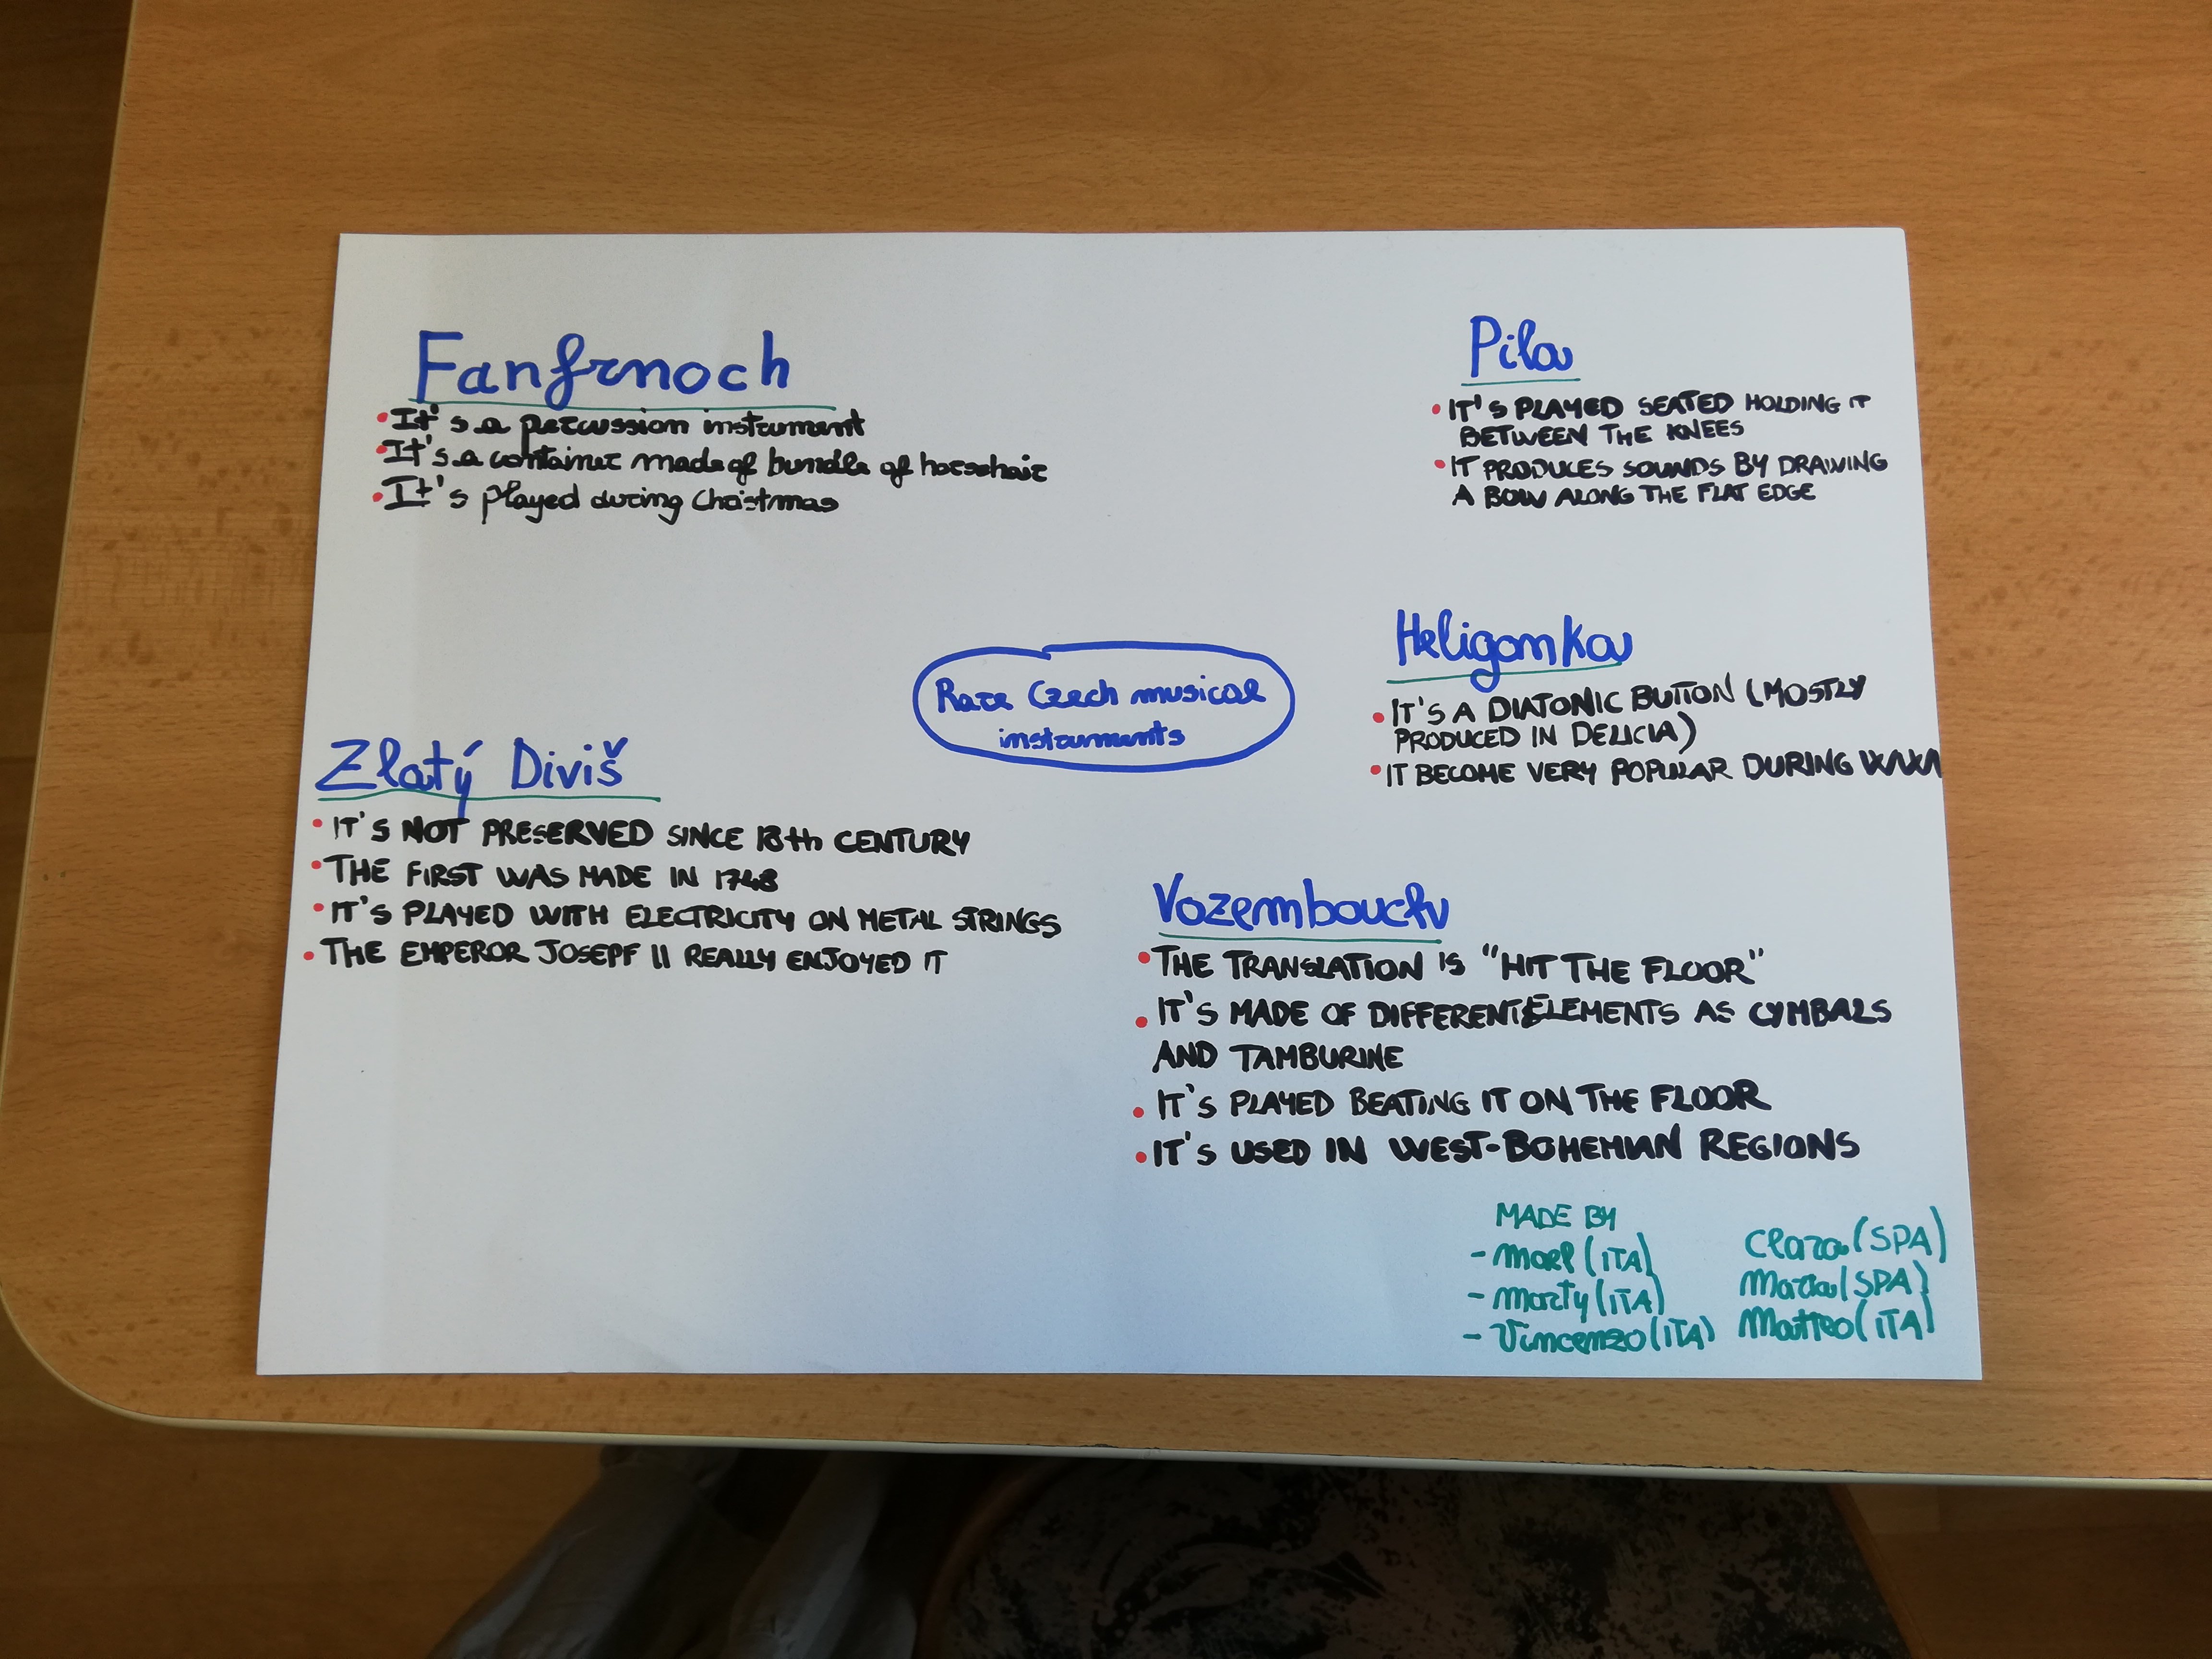 Fanfrnoch
• It's a percussion instrument
• It's a container made of bundle of horsehair
• It's played during Christmas
Pila
• IT'S PLAYED SEATED HOLDING IT
BETWEEN THE KNEES
• IT PRODUCES SOUNDS BY DRAWING
A BOW ALONG THE FLAT EDGE
Rare Czech musical
instruments
Heligonka
• IT'S A DIATONIC BUTTON (MOSTLY
PRODUCED IN DELICIA)
• IT BECOME VERY POPULAR DURING
Zlatý Diviš
• IT'S NOT PRESERVED SINCE 18th CENTURY
• THE FIRST WAS MADE IN 1748
• IT'S PLAYED WITH ELECTRICITY ON METAL STRINGS
• THE EMPEROR JOSEPF II REALLY ENJOYED IT
Vozembouch
• THE TRANSLATION IS "HIT THE FLOOR"
• IT'S MADE OF DIFFERENT ELEMENTS AS CYMBALS
AND TAMBURINE
• IT'S PLAYED BEATING IT ON THE FLOOR
• IT'S USED IN WEST-BOHEMIAN REGIONS
MADE BY
- (ITA)
- Marty (ITA)
- Vincenzo (ITA)
Clara (SPA)
Maria (SPA)
Matteo (ITA)